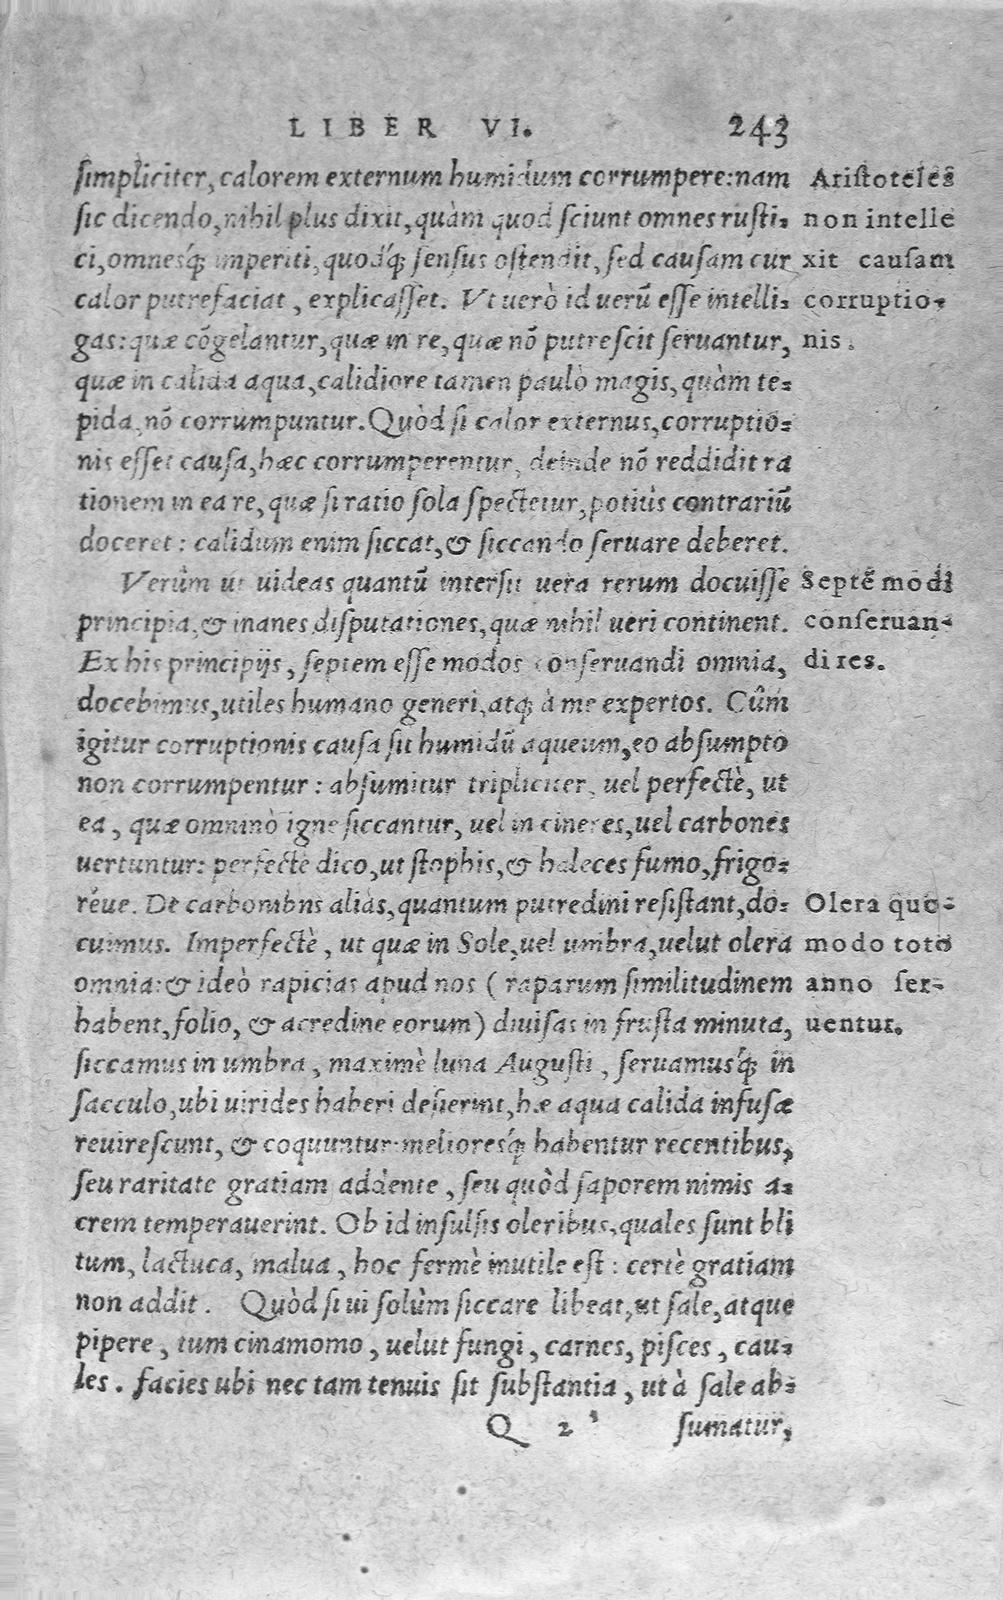 LIBER VI. 243
simpliciter, calorem externum humidum corrumpere: nam
sic dicendo, nihil plus dixit, quàm quod sciunt omnes rusti-
ci, omnesq́; imperiti, quodq́; sensus ostendit, sed causam cur
calor putrefaciat, explicasset. Vt uerò id uerũ esse intelli-
gas: quæ cõgelantur, quæ in re, quæ nõ putrescit seruantur,
quæ in calida aqua, calidiore tamen paulò magis, quàm te-
pida, nõ corrumpuntur. Quòd si calor externus, corruptio-
nis esset causa, hæc corrumperentur, deinde nõ reddidit ra
tionem in ea re, quæ si ratio sola spectetur, potiùs contrariũ
doceret: calidum enim siccat, & siccando seruare deberet.
Verùm ut uideas quantũ intersit uera rerum docuisse
principia, & inanes disputationes, quæ nihil ueri continent.
Ex his principijs, septem esse modos conseruandi omnia,
docebimus, utiles humano generi, atq; à me expertos. Cûm
igitur corruptionis causa sit humidũ aqueum, eo absumpto
non corrumpentur: absumitur tripliciter, uel perfectè, ut
ea, quæ omninò igne siccantur, uel in cineres, uel carbones
uertuntur: perfectè dico, ut stophis, & haleces fumo, frigo-
réue. De carbonibns aliàs, quantum putredini resistant, do-
cuimus. Imperfectè, ut quæ in Sole, uel umbra, uelut olera
omnia: & ideò rapicias apud nos ( raparum similitudinem
habent, folio, & acredine eorum) diuisas in frusta minuta,
siccamus in umbra, maximè luna Augusti, seruamusq́; in
sacculo, ubi uirides haberi desierint, hæ aqua calida infusæ
reuirescunt, & coquuntur: melioresq́; habentur recentibus,
seu raritate gratiam addente, seu quòd saporem nimis a-
crem temperauerint. Ob id insulsis oleribus, quales sunt bli
tum, lactuca, malua, hoc fermè inutile est: certè gratiam
non addit. Quòd si ui solùm siccare libeat, ut sale, atque
pipere, tum cinamomo, uelut fungi, carnes, pisces, cau-
les. facies ubi nec tam tenuis sit substantia, ut à sale ab-
Q 2 sumatur,
Aristoteles
non intelle
xit causam
corruptio-
nis.
Septẽ modi
conseruan-
di res.
Olera quo-
modo toto
anno ser-
uentur.